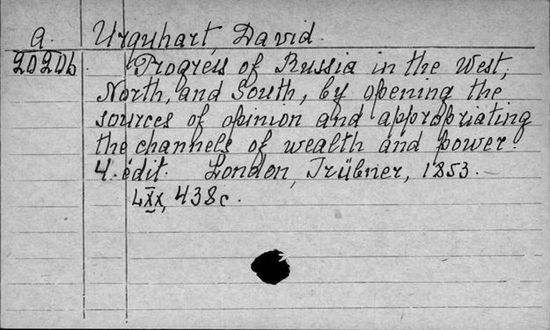 a. Urquhart, David.
20206 Progress of Russia in the West,
North, and South, by opening the
sources of opinion and appropriating
the channels of wealth and power.
4. edit. London, Trübner, 1853.
438c.